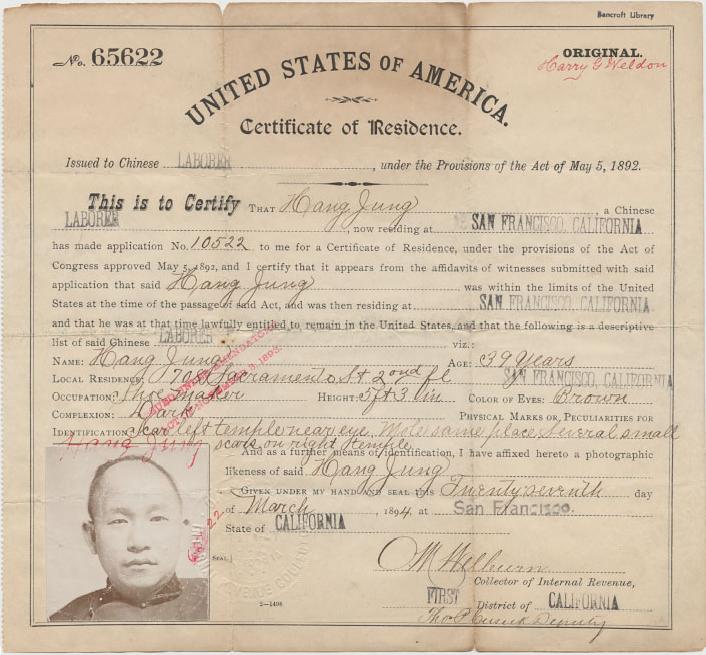 Bancroft Library
No. 65622
ORIGINAL.
Harry G Weldon
UNITED STATES OF AMERICA.
Certificate of Residence.
Issued to Chinese LABORER, under the Provisions of the Act of May 5, 1892.
This is to Certify THAT Hang Jung a Chinese
LABORER, now residing at SAN FRANCISCO, CALIFORNIA
has made application No. 10522 to me for a Certificate of Residence, under the provisions of the Act of
Congress approved May 5, 1892, and I certify that it appears from the affidavits of witnesses submitted with said
application that said Hang Jung was within the limits of the United
States at the time of the passage of said Act, and was then residing at SAN FRANCISCO, CALIFORNIA
and that he was at that time lawfully entitled to remain in the United States, and that the following is a descriptive
list of said Chinese LABORER viz.:
NAME: Hang Jung AGE: 39 Years
LOCAL RESIDENCE: Sacramento St 2ond fl SAN FRANCISCO, CALIFORNIA
OCCUPATION: Shoe maker HEIGHT: 5 ft 3 in COLOR OF EYES: Brown
COMPLEXION: Dark PHYSICAL MARKS OR PECULIARITIES FOR
IDENTIFICATION: Scar left temple near eye. Mole same place. Several small
scars on right temple
ISSUED UNDER AMENDATORY
ACT OF NOVEMBER 3, 1893.
Hang Jung
And as a further means of identification, I have affixed hereto a photographic
likeness of said Hang Jung
GIVEN UNDER MY HAND AND SEAL this Twenty seventh day
of March, 1894, at San Francisco.
State of CALIFORNIA
SEAL
M Welburn
Collector of Internal Revenue,
FIRST District of CALIFORNIA
Deputy
2—1496